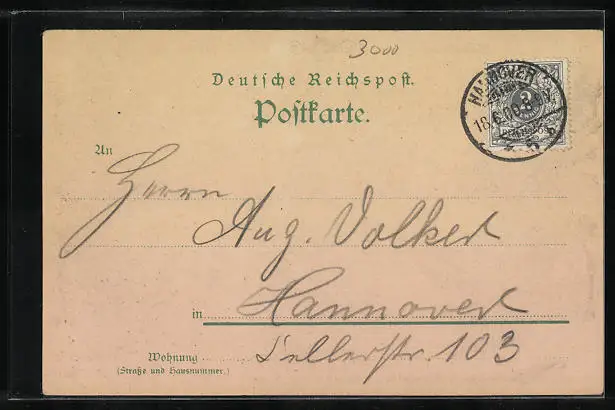 3000
Deutsche Reichspost.
Postkarte.
HANNOVER
18.6.00
3
An
Herrn
Aug. Volker
in Hannover
Wohnung Tellerstr. 103
(Straße und Hausnummer.)